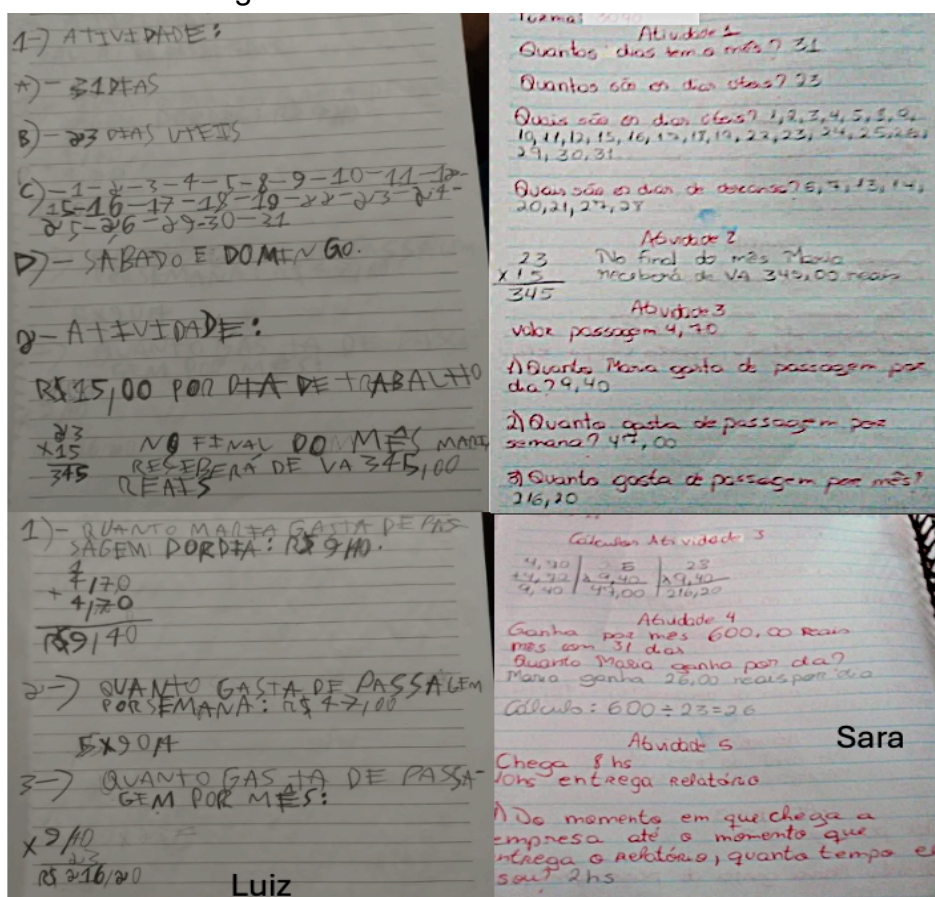 1-) ATIVIDADE:
A) - 31 DIAS
B) - 23 DIAS UTEIS
C) - 1 - 2 - 3 - 4 - 5 - 8 - 9 - 10 - 11 - 12 -
15 - 16 - 17 - 18 - 19 - 22 - 23 - 24 -
25 - 26 - 29 - 30 - 31
D) - SÁBADO E DOMINGO.
2 - ATIVIDADE:
R$ 15,00 POR DIA DE TRABALHO
23
x15
345
NO FINAL DO MÊS MARI
RESEBERÁ DE VA 345,00
REAIS
1) - QUANTO MARIA GASTA DE PAS
SAGEM PORDIA: R$ 9,40.
1
4,70
+ 4,70
R$ 9,40
2-) QUANTO GASTA DE PASSAGEM
POR SEMANA: R$ 47,00
3-) QUANTO GASTA DE PASSA-
GEM POR MÊS:
x 9,40
23
R$ 216,20
Luiz
Turma:
Atividade 1
Quantos dias tem o mês? 31
Quantos são os dias úteis? 23
Quais são os dias úteis? 1, 2, 3, 4, 5, 8, 9,
10, 11, 12, 15, 16, 17, 18, 19, 22, 23, 24, 25, 26,
29, 30, 31
Quais são os dias de descanso? 6, 7, 13, 14,
20, 21, 27, 28
Atividade 2
23
x 15
345
No final do mês Maria
receberá de VA 345,00 reais
Atividade 3
valor passagem 4,70
1) Quanto Maria gasta de passagem por
dia? 9,40
2) Quanto gasta de passagem por
semana? 47,00
3) Quanto gasta de passagem por mês?
216,20
Cálculos Atividade 3
4,70 | 5 | 23
+4,70 | x 9,40 | x 9,40
9,40 | 47,00 | 216,20
Atividade 4
Ganha por mês 600,00 reais
mês com 31 dias
Quanto Maria ganha por dia?
Maria ganha 26,00 reais por dia
Cálculo: 600 ÷ 23 = 26
Atividade 5
Chega 8 hs
10hs entrega Relatório
1) Do momento em que chega a
empresa até o momento que
entrega o Relatório, quanto tempo
2hs
Sara